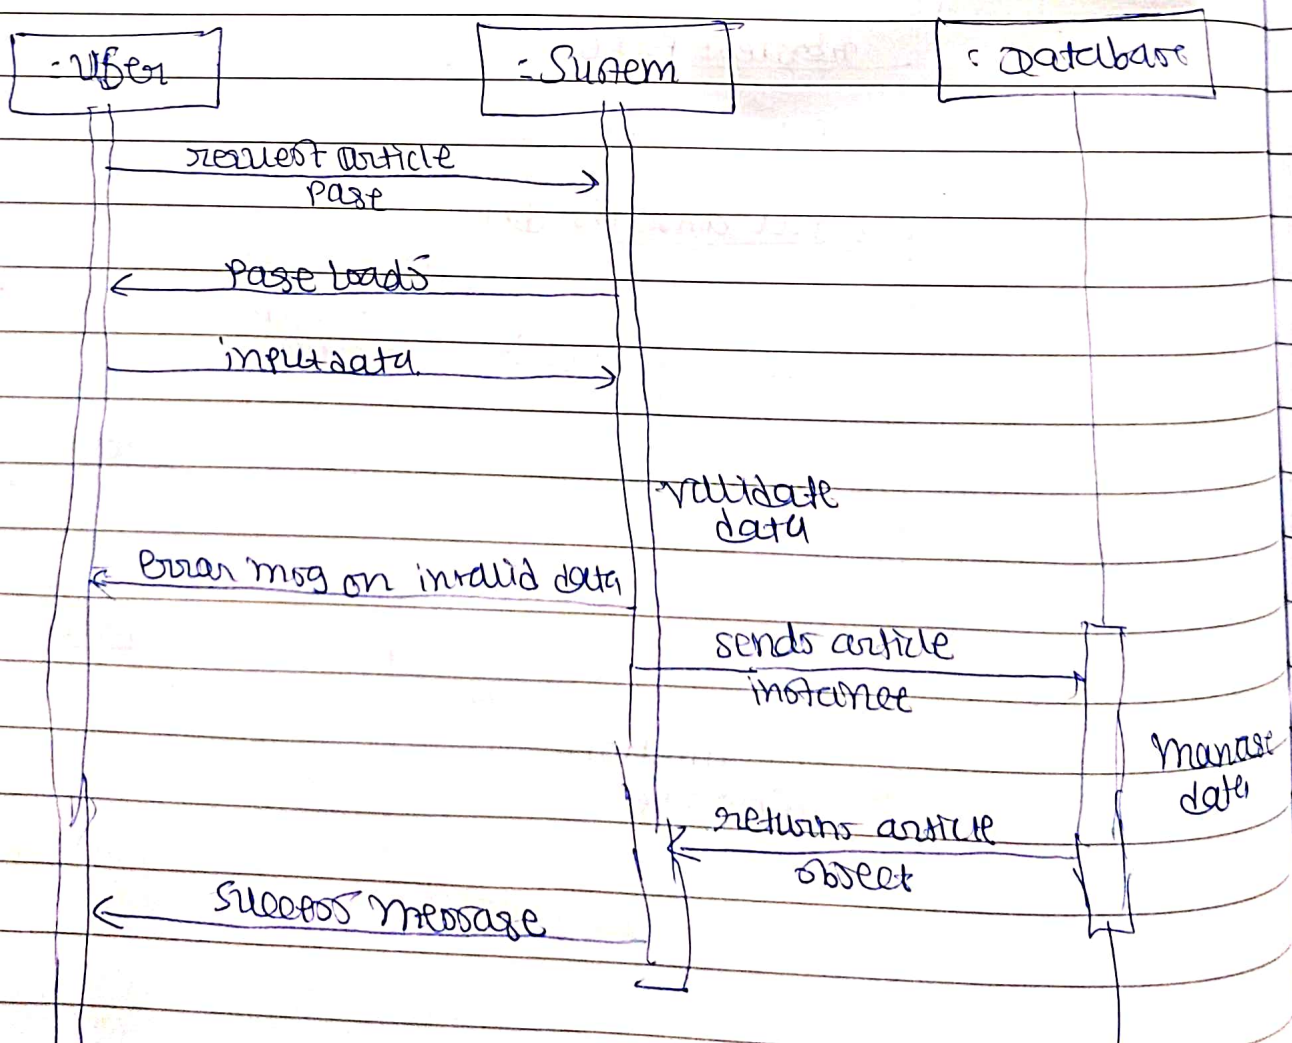 :User
:System
:Database
request article
page
page loads
input data
validate
data
error msg on invalid data
sends article
instance
manage
data
returns article
object
success message